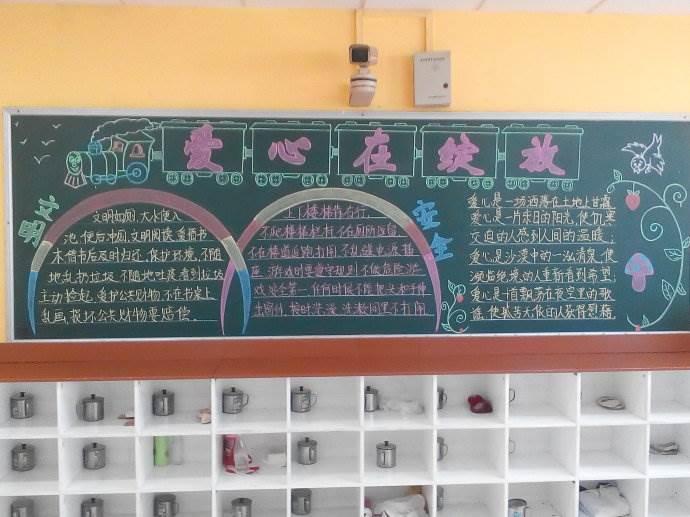 爱心在绽放
文明
文明如厕,大小便入
池,便后冲厕,文明阅读,爱惜书
本,借书后及时归还,保护环境,不随
地乱扔垃圾,不随地吐痰,看到垃圾
主动捡起,爱护公共财物,不在书桌上
乱画,损坏公共财物要赔偿。
安全
上下楼梯靠右行,
不趴楼梯栏杆,不在厕所逗留
不在楼道追跑打闹,不乱碰电源插
座,游戏时要遵守规则,不做危险游
戏,安全第一,任何时候不能把头和手伸
出窗外,按时洗澡,洗漱间里不打闹
爱心是一场洒落在土地上甘露
爱心是一片冬日的阳光,使饥寒
交迫的人感到人间的温暖;
爱心是沙漠中的一泓清泉,使
濒临绝境的人重新看到希望;
爱心是一首飘荡在夜空里的歌
谣,使孤苦无依的人获得慰藉